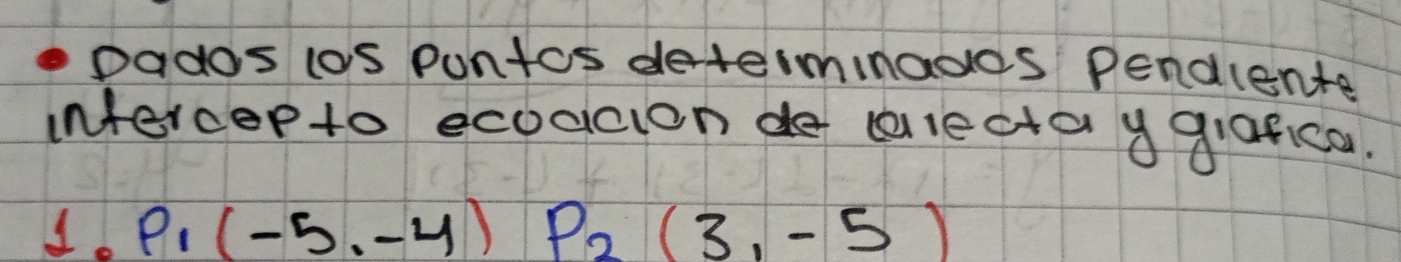 • Dados los puntos determinados pendiente
intercepto ecuacion de la recta y grafica.
1. P₁ (-5,-4) P₂ (3,-5)